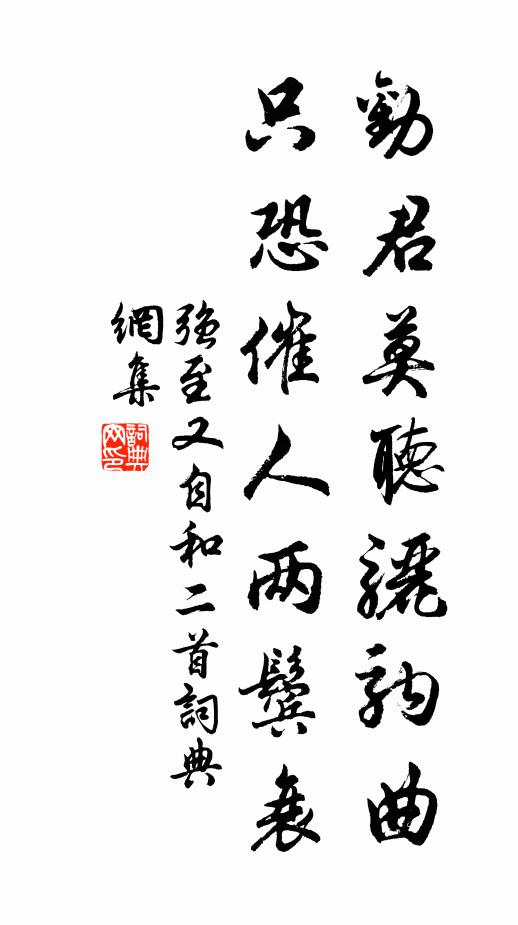 勸君莫聽驪駒曲
只恐催人两鬢衰
強至又自和二首詞典
網集
詞典网印